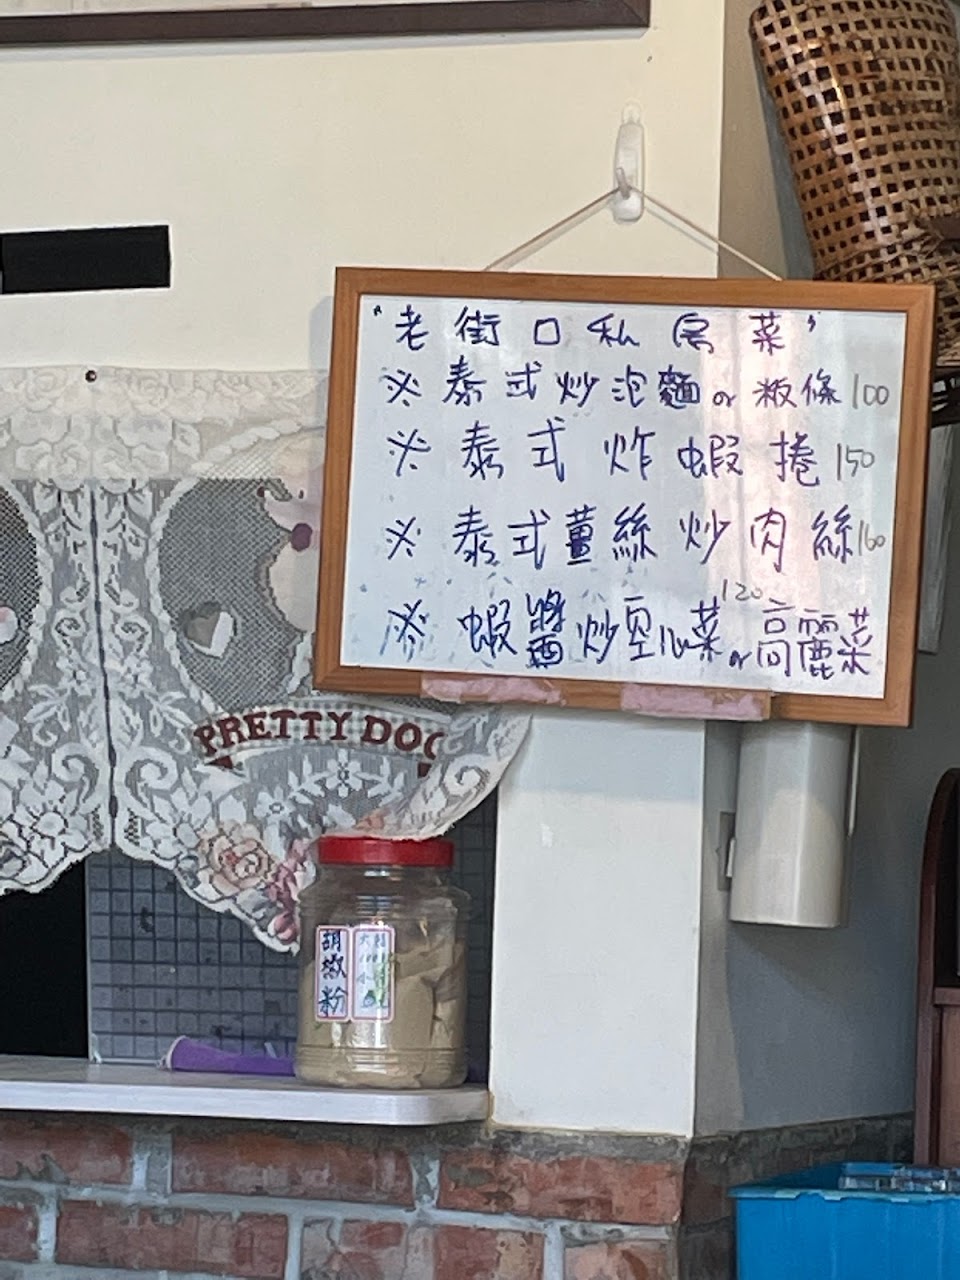 "老街口私房菜"
※泰式炒泡麵or粄條100
※泰式炸蝦捲150
※泰式薑絲炒肉絲160
※蝦醬炒空心菜120or高麗菜
PRETTY DOG
胡椒粉